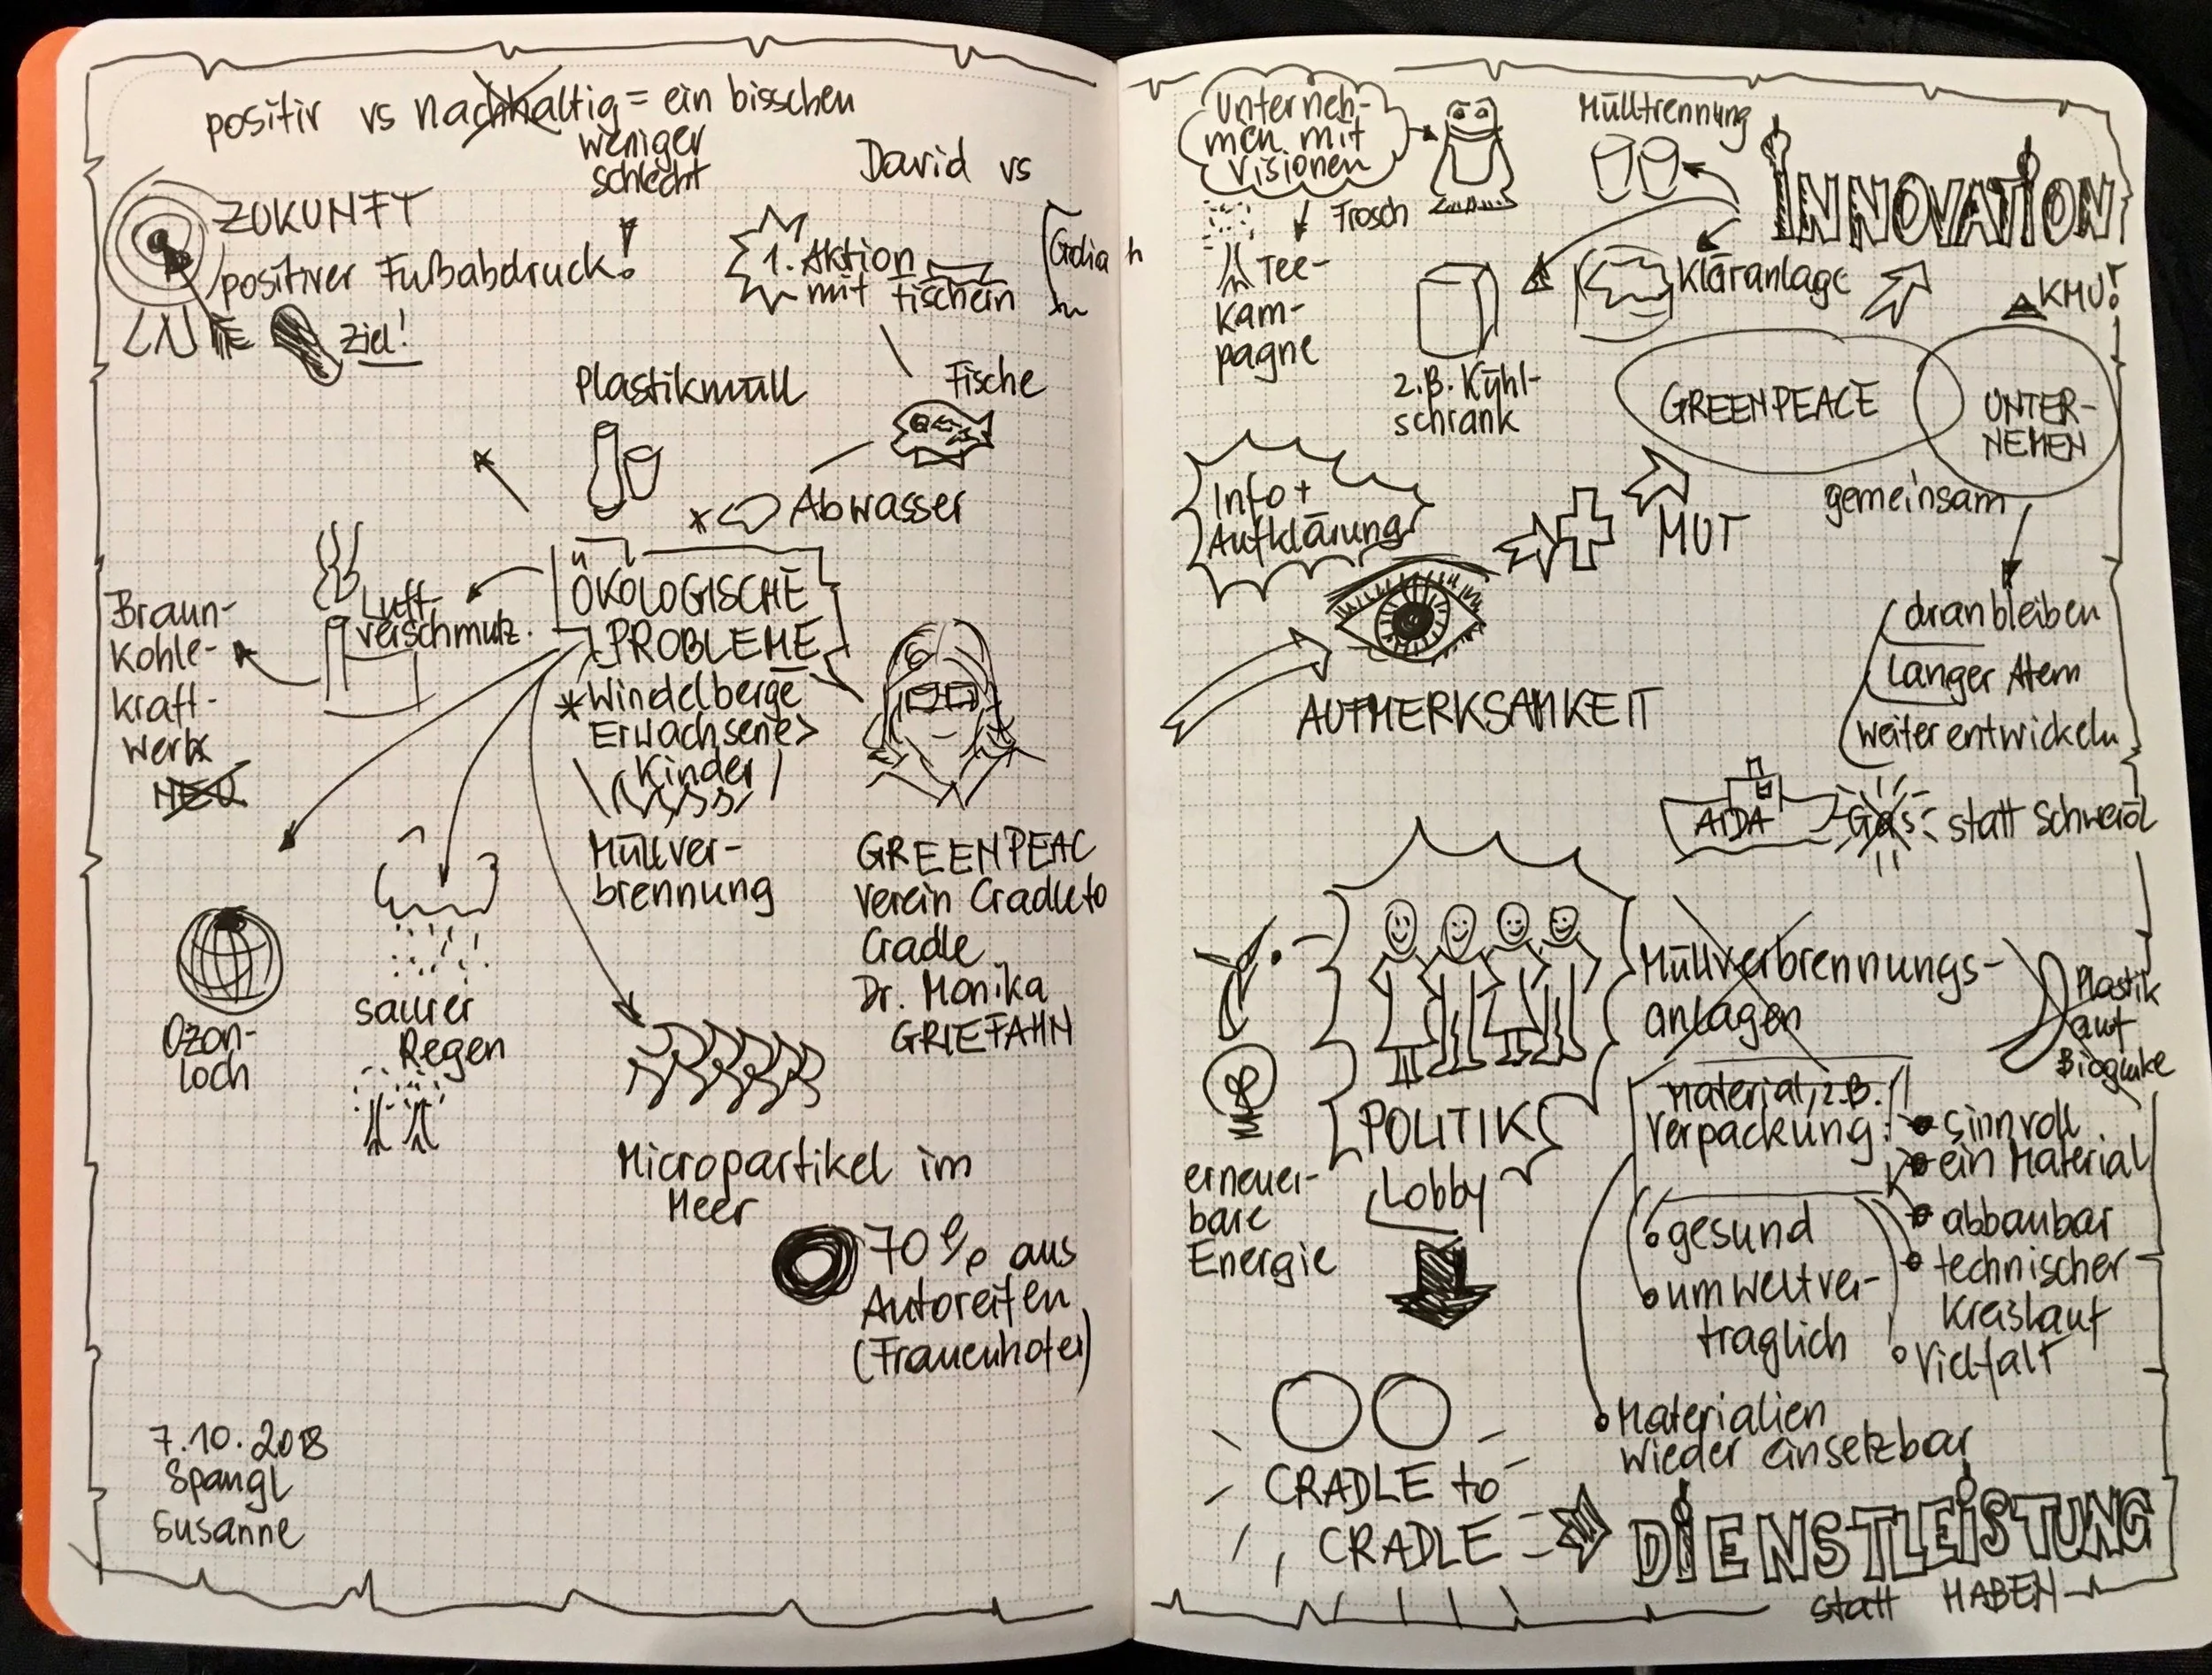 positiv vs nachhaltig = ein bisschen
weniger
schlecht
David vs
ZUKUNFT
positiver Fußabdruck!
Ziel!
1. Aktion
mit Fischern
Plastikmüll
Fische
Abwasser
ÖKOLOGISCHE
PROBLEME
Luft-
verschmutz.
Braun-
kohle-
kraft-
werk
NEU
* Windelberge
Erwachsene >
Kinder
Müllver-
brennung
GREENPEAC
Verein Cradle to
Cradle
Dr. Monika
GRIEFAHN
Ozon-
loch
saurer
Regen
Micropartikel im
Meer
70% aus
Autoreifen
(Frauenhofer)
7.10.2018
Spangl
Susanne
Unterneh-
men mit
Visionen
Frosch
Tee-
kam-
pagne
Mülltrennung
INNOVATION
Kläranlage
z.B. Kühl-
schrank
KMU!
GREENPEACE
UNTER-
NEHMEN
gemeinsam
Info +
Aufklärung
MUT
AUFMERKSAMKEIT
dranbleiben
langer Atem
weiterentwickeln
AIDA
Gas statt Schweröl
Müllverbrennungs-
anlagen
Plastik
auf
POLITIK
Lobby
erneuer-
bare
Energie
Material, z.B.
Verpackung:
sinnvoll
ein Material
abbaubar
technischer
Kreislauf
Vielfalt
gesund
umweltver-
träglich
Materialien
wieder einsetzbar
CRADLE to
CRADLE
DIENSTLEISTUNG
statt HABEN